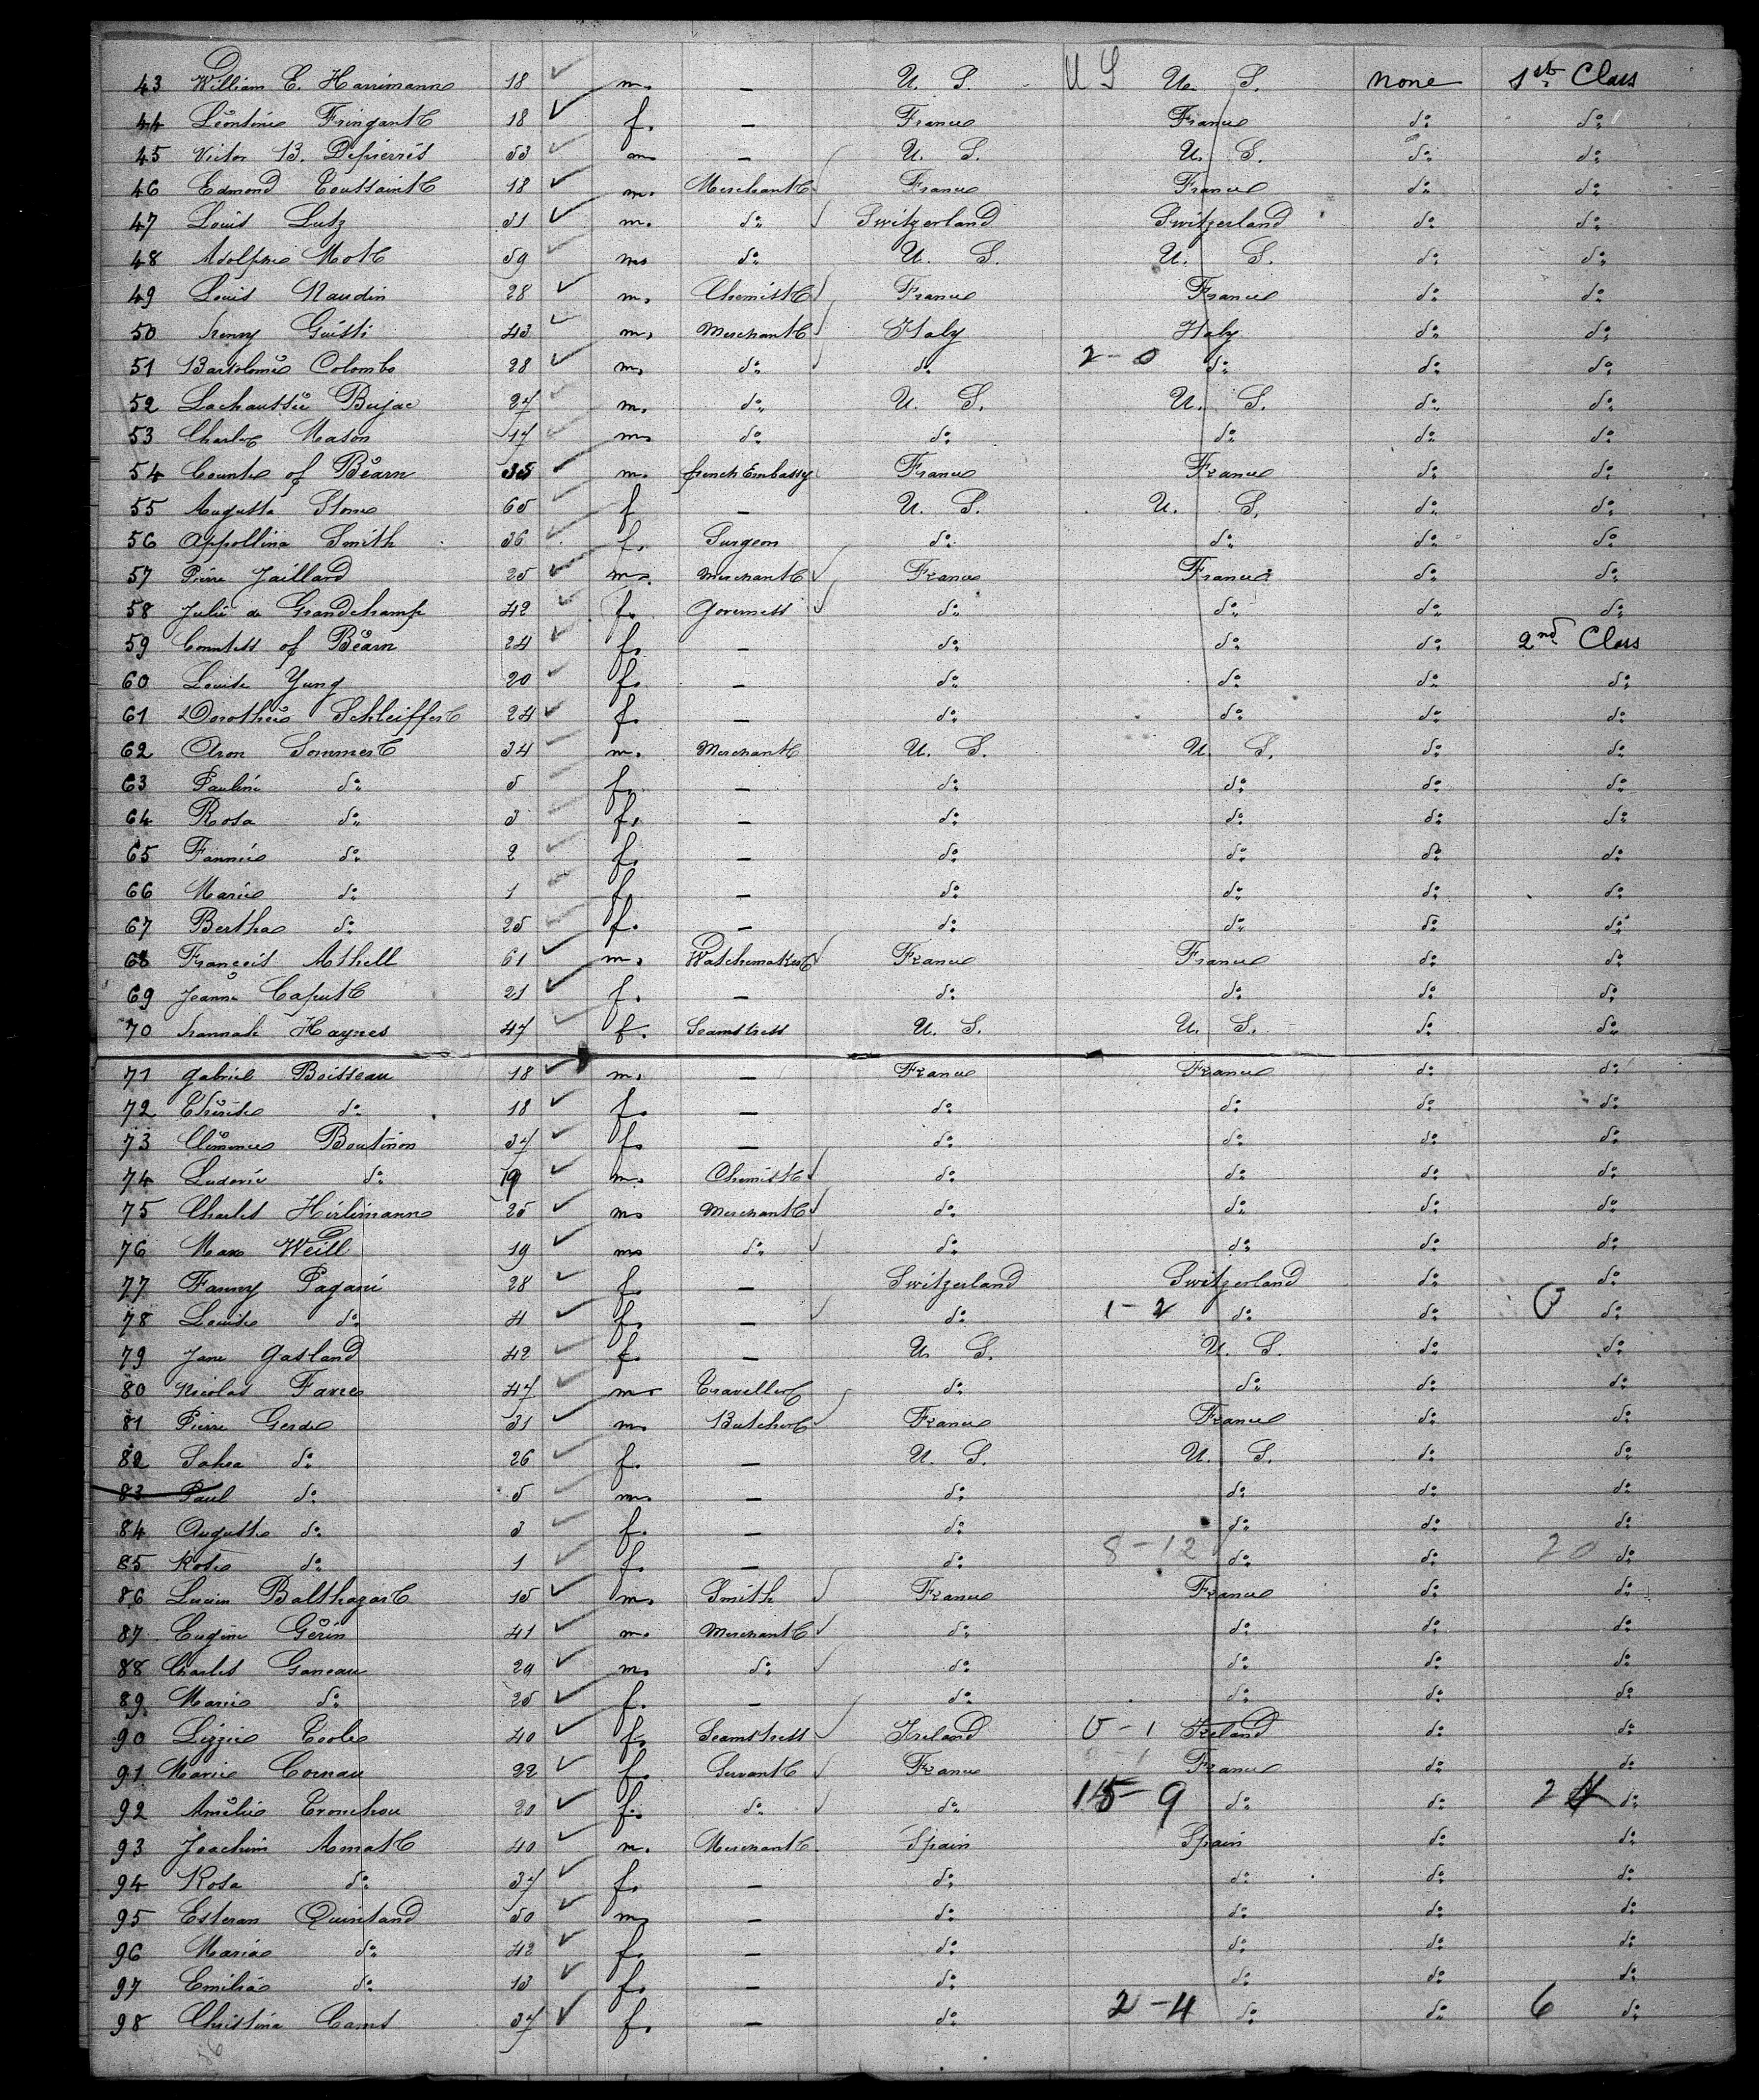 43 William E. Harrimann 18 m. — U. S. U S U. S. none 1st Class
44 Léontine Fringant 18 f. — France France do do
45 Victor B. Depierris 53 m — U. S. U. S. do do
46 Edmond Toussaint 18 m. Merchant France France do do
47 Louis Lutz 31 m. do Switzerland Switzerland do do
48 Adolphe Mot 59 m do U. S. U. S. do do
49 Louis Naudin 28 m. Chemist France France do do
50 henry Giusti 43 m. Merchant Italy Italy do do
51 Bartolomé Colombo 28 m. do do 2-0 do do do
52 Lachaussée Bujac 27 m. do U. S. U. S. do do
53 Charles Mason 17 m do do do do do
54 Count of Béarn 35 m. french Embassy France France do do
55 Augusta Stone 65 f — U. S. U. S. do do
56 Appollina Smith 36 f. Surgeon do do do do
57 Pierre Jaillard 25 m. Merchant France France do do
58 Julie de Grandchamp 42 f. Governess do do do do
59 Countess of Béarn 24 f. — do do do 2nd Class
60 Louise Yung 20 f. — do do do do
61 Dorothée Schleiffer 24 f. — do do do do
62 Aron Sommer 34 m. Merchant U. S. U. S. do do
63 Pauline do 5 f. — do do do do
64 Rosa do 3 f. — do do do do
65 Fannie do 2 f. — do do do do
66 Marie do 1 f. — do do do do
67 Bertha do 25 f. — do do do do
68 François Athell 61 m. Watchmaker France France do do
69 Jeanne Caput 21 f. — do do do do
70 hannah Haynes 47 f. Seamstress U. S. U. S. do do
71 Gabriel Boisseau 18 m. — France France do do
72 Thérèse do 18 f. — do do do do
73 Clémence Boutinon 37 f. — do do do do
74 Ludovic do 19 m. Chemist do do do do
75 Charles Hirlimann 25 m Merchant do do do do
76 Max Weill 19 m do do do do do
77 Fanny Pagani 28 f. — Switzerland Switzerland do do
78 Louise do 4 f. — do 1-2 do do 0 do
79 Jane Gasland 42 f. — U. S. U. S. do do
80 Nicolas Favre 47 m Traveller do do do do
81 Pierre Gerde 31 m. Butcher France France do do
82 do 26 f. — U. S. U. S. do do
83 Paul do 5 m. — do do do do
84 Auguste do 3 f. — do do do do
85 Rose do 1 f. — do 8-12 do do 20 do
86 Lucien Balthazar 15 m. Smith France France do do
87 Eugène Gérin 41 m. Merchant do do do do
88 Charles Ganeau 29 m. do do do do do
89 Marie do 25 f. — do do do do
90 Lizzie Toole 40 f. Seamstress Ireland 0-1 Ireland do do
91 Marie Cornau 22 f. Servant France France do do
92 Amélie Tronchou 20 f. do do 15-9 do do 24 do
93 Joachim Amat 40 m. Merchant Spain Spain do do
94 Rosa do 37 f. — do do do do
95 Estevan Quintand 50 m. — do do do do
96 Maria do 42 f. — do do do do
97 Emilia do 13 f. — do do do do
98 Christina Cams 37 f. — do 2-4 do do 6 do
56